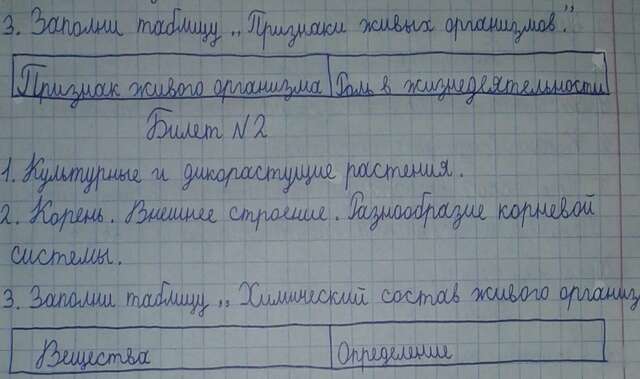 3. Заполни таблицу „Признаки живых организмов".
Признак живого организма Роль в жизнедеятельности
Билет N 2
1. Культурные и дикорастущие растения.
2. Корень. Внешнее строение. Разнообразие корневой
системы.
3. Заполни таблицу „Химический состав живого организ
Вещества Определение